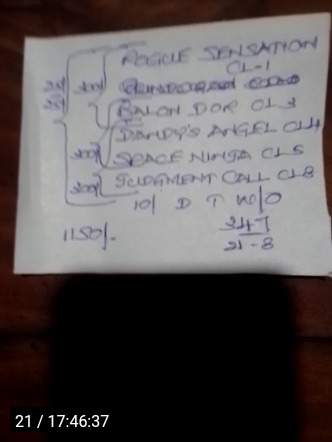 ROGUE SENSATION
CL-1
BALON DOR CL 3
DANDY'S ANGEL CL4
SPACE NINJA CL5
JUDGMENT CALL CL8
10/ D T W/O
1150/-
347
21-8
21 / 17:46:37